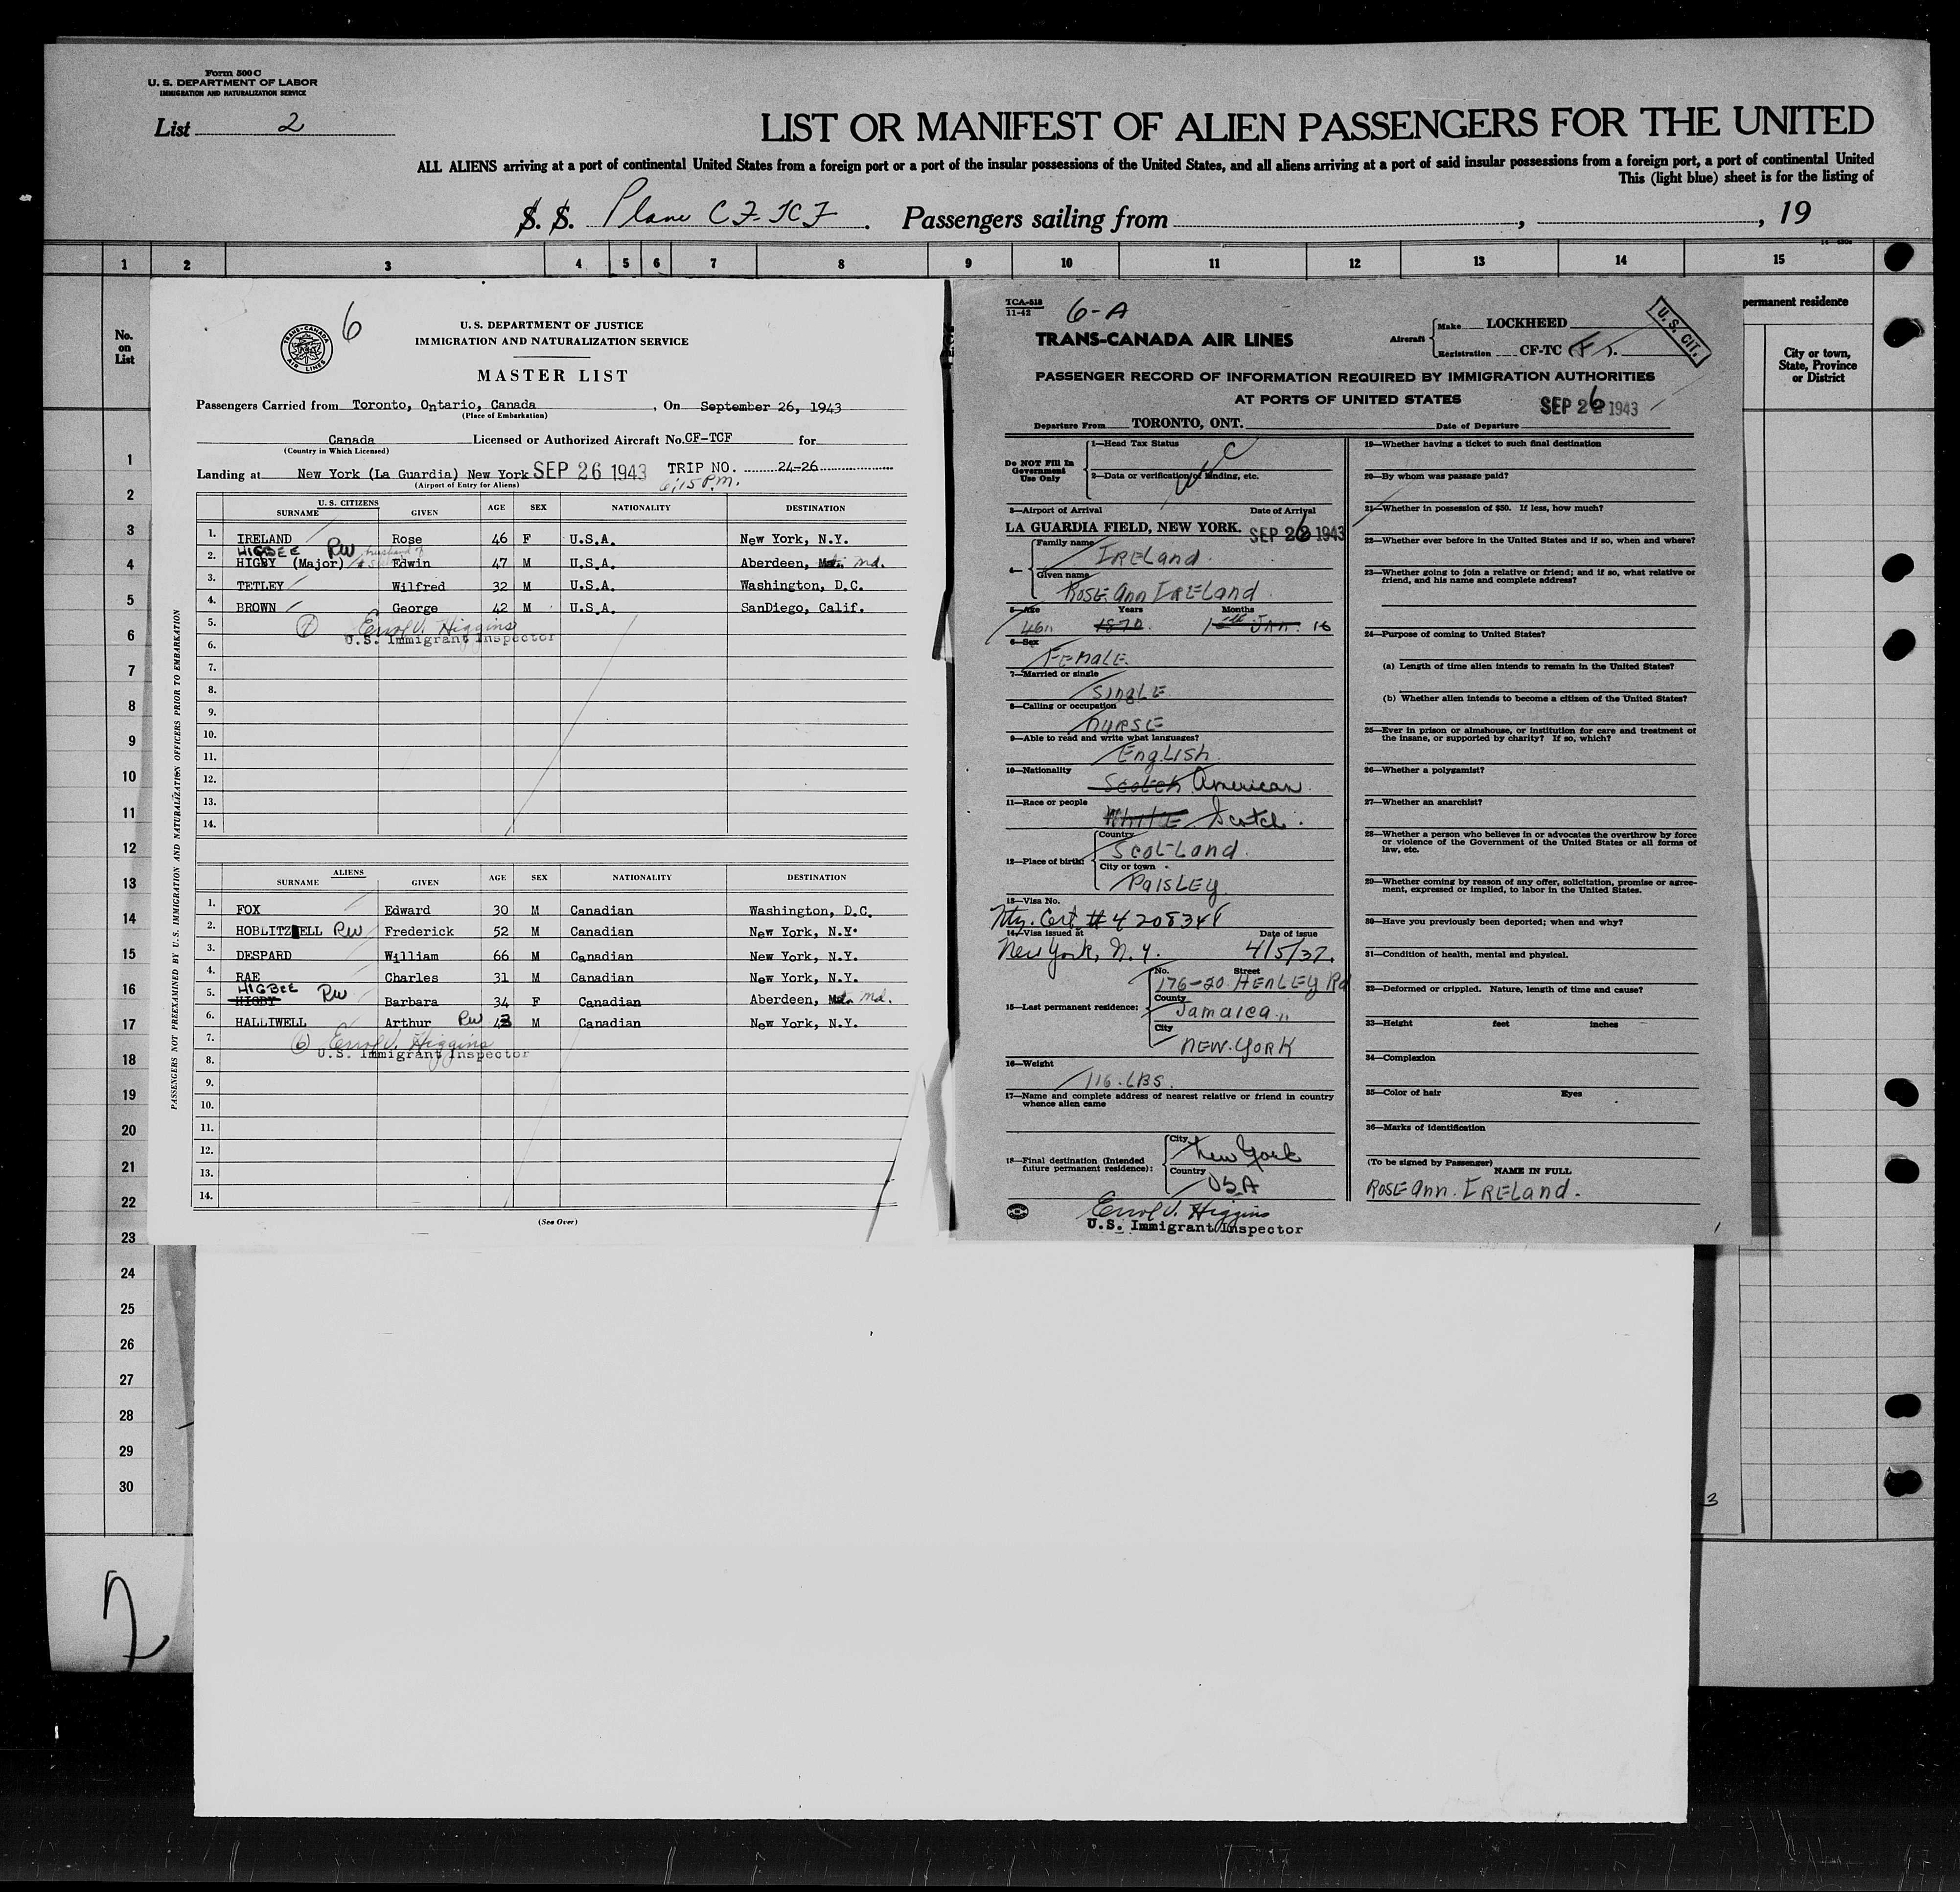 Form 500 C
U. S. DEPARTMENT OF LABOR
IMMIGRATION AND NATURALIZATION SERVICE
List 2
LIST OR MANIFEST OF ALIEN PASSENGERS FOR THE UNITED
ALL ALIENS arriving at a port of continental United States from a foreign port or a port of the insular possessions of the United States, and all aliens arriving at a port of said insular possessions from a foreign port, a port of continental United
This (light blue) sheet is for the listing of
S. S. Plane CF-TCF. Passengers sailing from , , 19
1 2 3 4 5 6 7 8 9 10 11 12 13 14 15
No. on List
permanent residence
City or town, State, Province or District
1
2
3
4
5
6
7
8
9
10
11
12
13
14
15
16
17
18
19
20
21
22
23
24
25
26
27
28
29
30
2
3
6
TRANS-CANADA AIR LINES
U. S. DEPARTMENT OF JUSTICE
IMMIGRATION AND NATURALIZATION SERVICE
MASTER LIST
Passengers Carried from Toronto, Ontario, Canada , On September 26, 1943
(Place of Embarkation)
Canada Licensed or Authorized Aircraft No. CF-TCF for
(Country in Which Licensed)
Landing at New York (La Guardia) New York SEP 26 1943 TRIP NO. 24-26
(Airport of Entry for Aliens) 6:15 P.M.
PASSENGERS NOT PREEXAMINED BY U.S. IMMIGRATION AND NATURALIZATION OFFICERS PRIOR TO EMBARKATION
U. S. CITIZENS
SURNAME GIVEN AGE SEX NATIONALITY DESTINATION
1. IRELAND Rose 46 F U.S.A. New York, N.Y.
HIGBEE RW husband of
2. HIGBY (Major) Edwin 47 M U.S.A. Aberdeen, Md.
3. TETLEY Wilfred 32 M U.S.A. Washington, D.C.
4. BROWN George 42 M U.S.A. SanDiego, Calif.
5. Errol V. Higgins
6. U.S. Immigrant Inspector
7.
8.
9.
10.
11.
12.
13.
14.
ALIENS
SURNAME GIVEN AGE SEX NATIONALITY DESTINATION
1. FOX Edward 30 M Canadian Washington, D.C.
2. HOBLITZELL RW Frederick 52 M Canadian New York, N.Y.
3. DESPARD William 66 M Canadian New York, N.Y.
4. RAE Charles 31 M Canadian New York, N.Y.
HIGBEE RW
5. HIGBY Barbara 34 F Canadian Aberdeen, Md.
6. HALLIWELL Arthur RW 43 M Canadian New York, N.Y.
7. 6 Errol V. Higgins
8. U.S. Immigrant Inspector
9.
10.
11.
12.
13.
14.
(See Over)
TCA-518
11-42
6-A
U. S. CIT.
TRANS-CANADA AIR LINES
Aircraft Make LOCKHEED
Registration CF-TC (F).
PASSENGER RECORD OF INFORMATION REQUIRED BY IMMIGRATION AUTHORITIES
AT PORTS OF UNITED STATES
SEP 26 1943
Departure From TORONTO, ONT. Date of Departure
Do NOT Fill In Government Use Only
1—Head Tax Status
2—Data or verification of landing, etc.
3—Airport of Arrival Date of Arrival
LA GUARDIA FIELD, NEW YORK. SEP 26 1943
4— Family name IRELand.
Given name ROSE Ann IRELand
5—Age Years Months
46 1870. 1st Jan. 16
6—Sex
FEMaLE.
7—Married or single
SINgLE
8—Calling or occupation
NURSE
9—Able to read and write what languages?
EngLISh.
10—Nationality
Scotch American
11—Race or people
White Scotch.
12—Place of birth: Country ScotLand.
City or town PaisLEy.
13—Visa No.
Ntz. Cert # 4208348
14—Visa issued at Date of issue
New York, N.Y. 4/5/37.
15—Last permanent residence: No. Street 176-20. HENLEY Rd
County Jamaica
City NEW.YORK
16—Weight
116. LBS.
17—Name and complete address of nearest relative or friend in country whence alien came
18—Final destination (Intended future permanent residence): City New York
Country USA
Errol V. Higgins
U.S. Immigrant Inspector
19—Whether having a ticket to such final destination
20—By whom was passage paid?
21—Whether in possession of $50. If less, how much?
22—Whether ever before in the United States and if so, when and where?
23—Whether going to join a relative or friend; and if so, what relative or friend, and his name and complete address?
24—Purpose of coming to United States?
(a) Length of time alien intends to remain in the United States?
(b) Whether alien intends to become a citizen of the United States?
25—Ever in prison or almshouse, or institution for care and treatment of the insane, or supported by charity? If so, which?
26—Whether a polygamist?
27—Whether an anarchist?
28—Whether a person who believes in or advocates the overthrow by force or violence of the Government of the United States or all forms of law, etc.
29—Whether coming by reason of any offer, solicitation, promise or agreement, expressed or implied, to labor in the United States.
30—Have you previously been deported; when and why?
31—Condition of health, mental and physical.
32—Deformed or crippled. Nature, length of time and cause?
33—Height feet inches
34—Complexion
35—Color of hair Eyes
36—Marks of identification
(To be signed by Passenger) NAME IN FULL
ROSE Ann. IRELand.